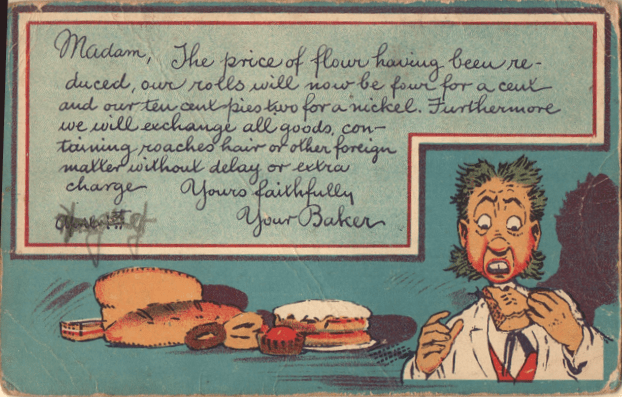 Madam, The price of flour having been re-
duced, our rolls will now be four for a cent
and our ten cent pies two for a nickel. Furthermore
we will exchange all goods, con-
taining roaches hair or other foreign
matter without delay or extra
charge Yours faithfully
Your Baker